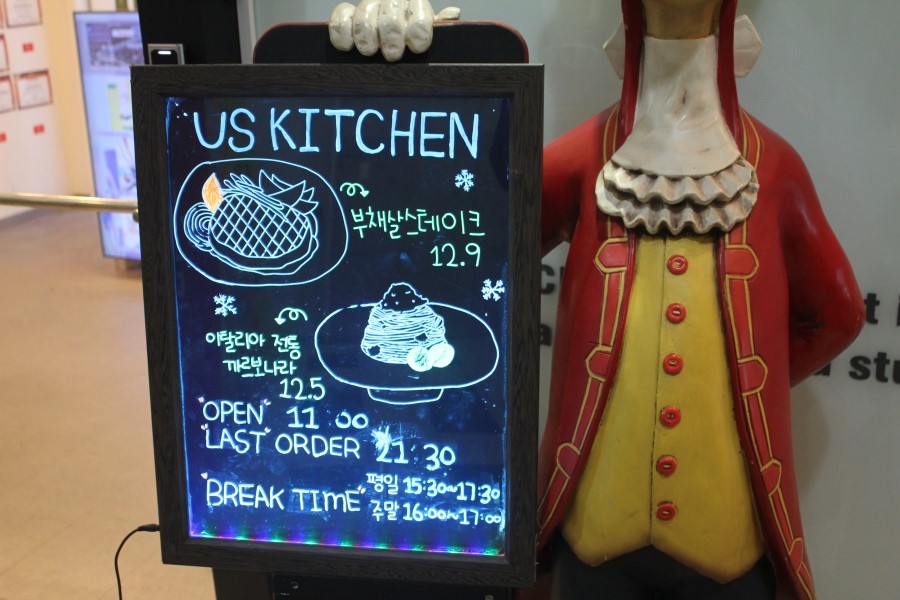 US KITCHEN
부채살스테이크
12.9
이탈리아 전통
까르보나라
12.5
"OPEN" 11 00
"LAST ORDER 21 30
"BREAK TIME" 평일 15:30~17:30
주말 16:00~17:00